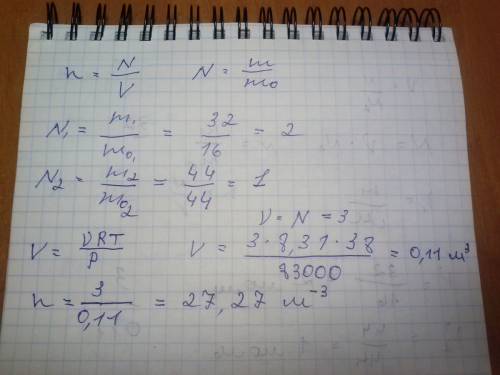 n = N/V    N = m/m₀
N₁ = m₁/m₀₁ = 32/16 = 2
N₂ = m₂/m₀₂ = 44/44 = 1
ν = N = 3
V = νRT/P    V = 3·8,31·38/83000 = 0,11 м³
n = 3/0,11 = 27,27 м⁻³